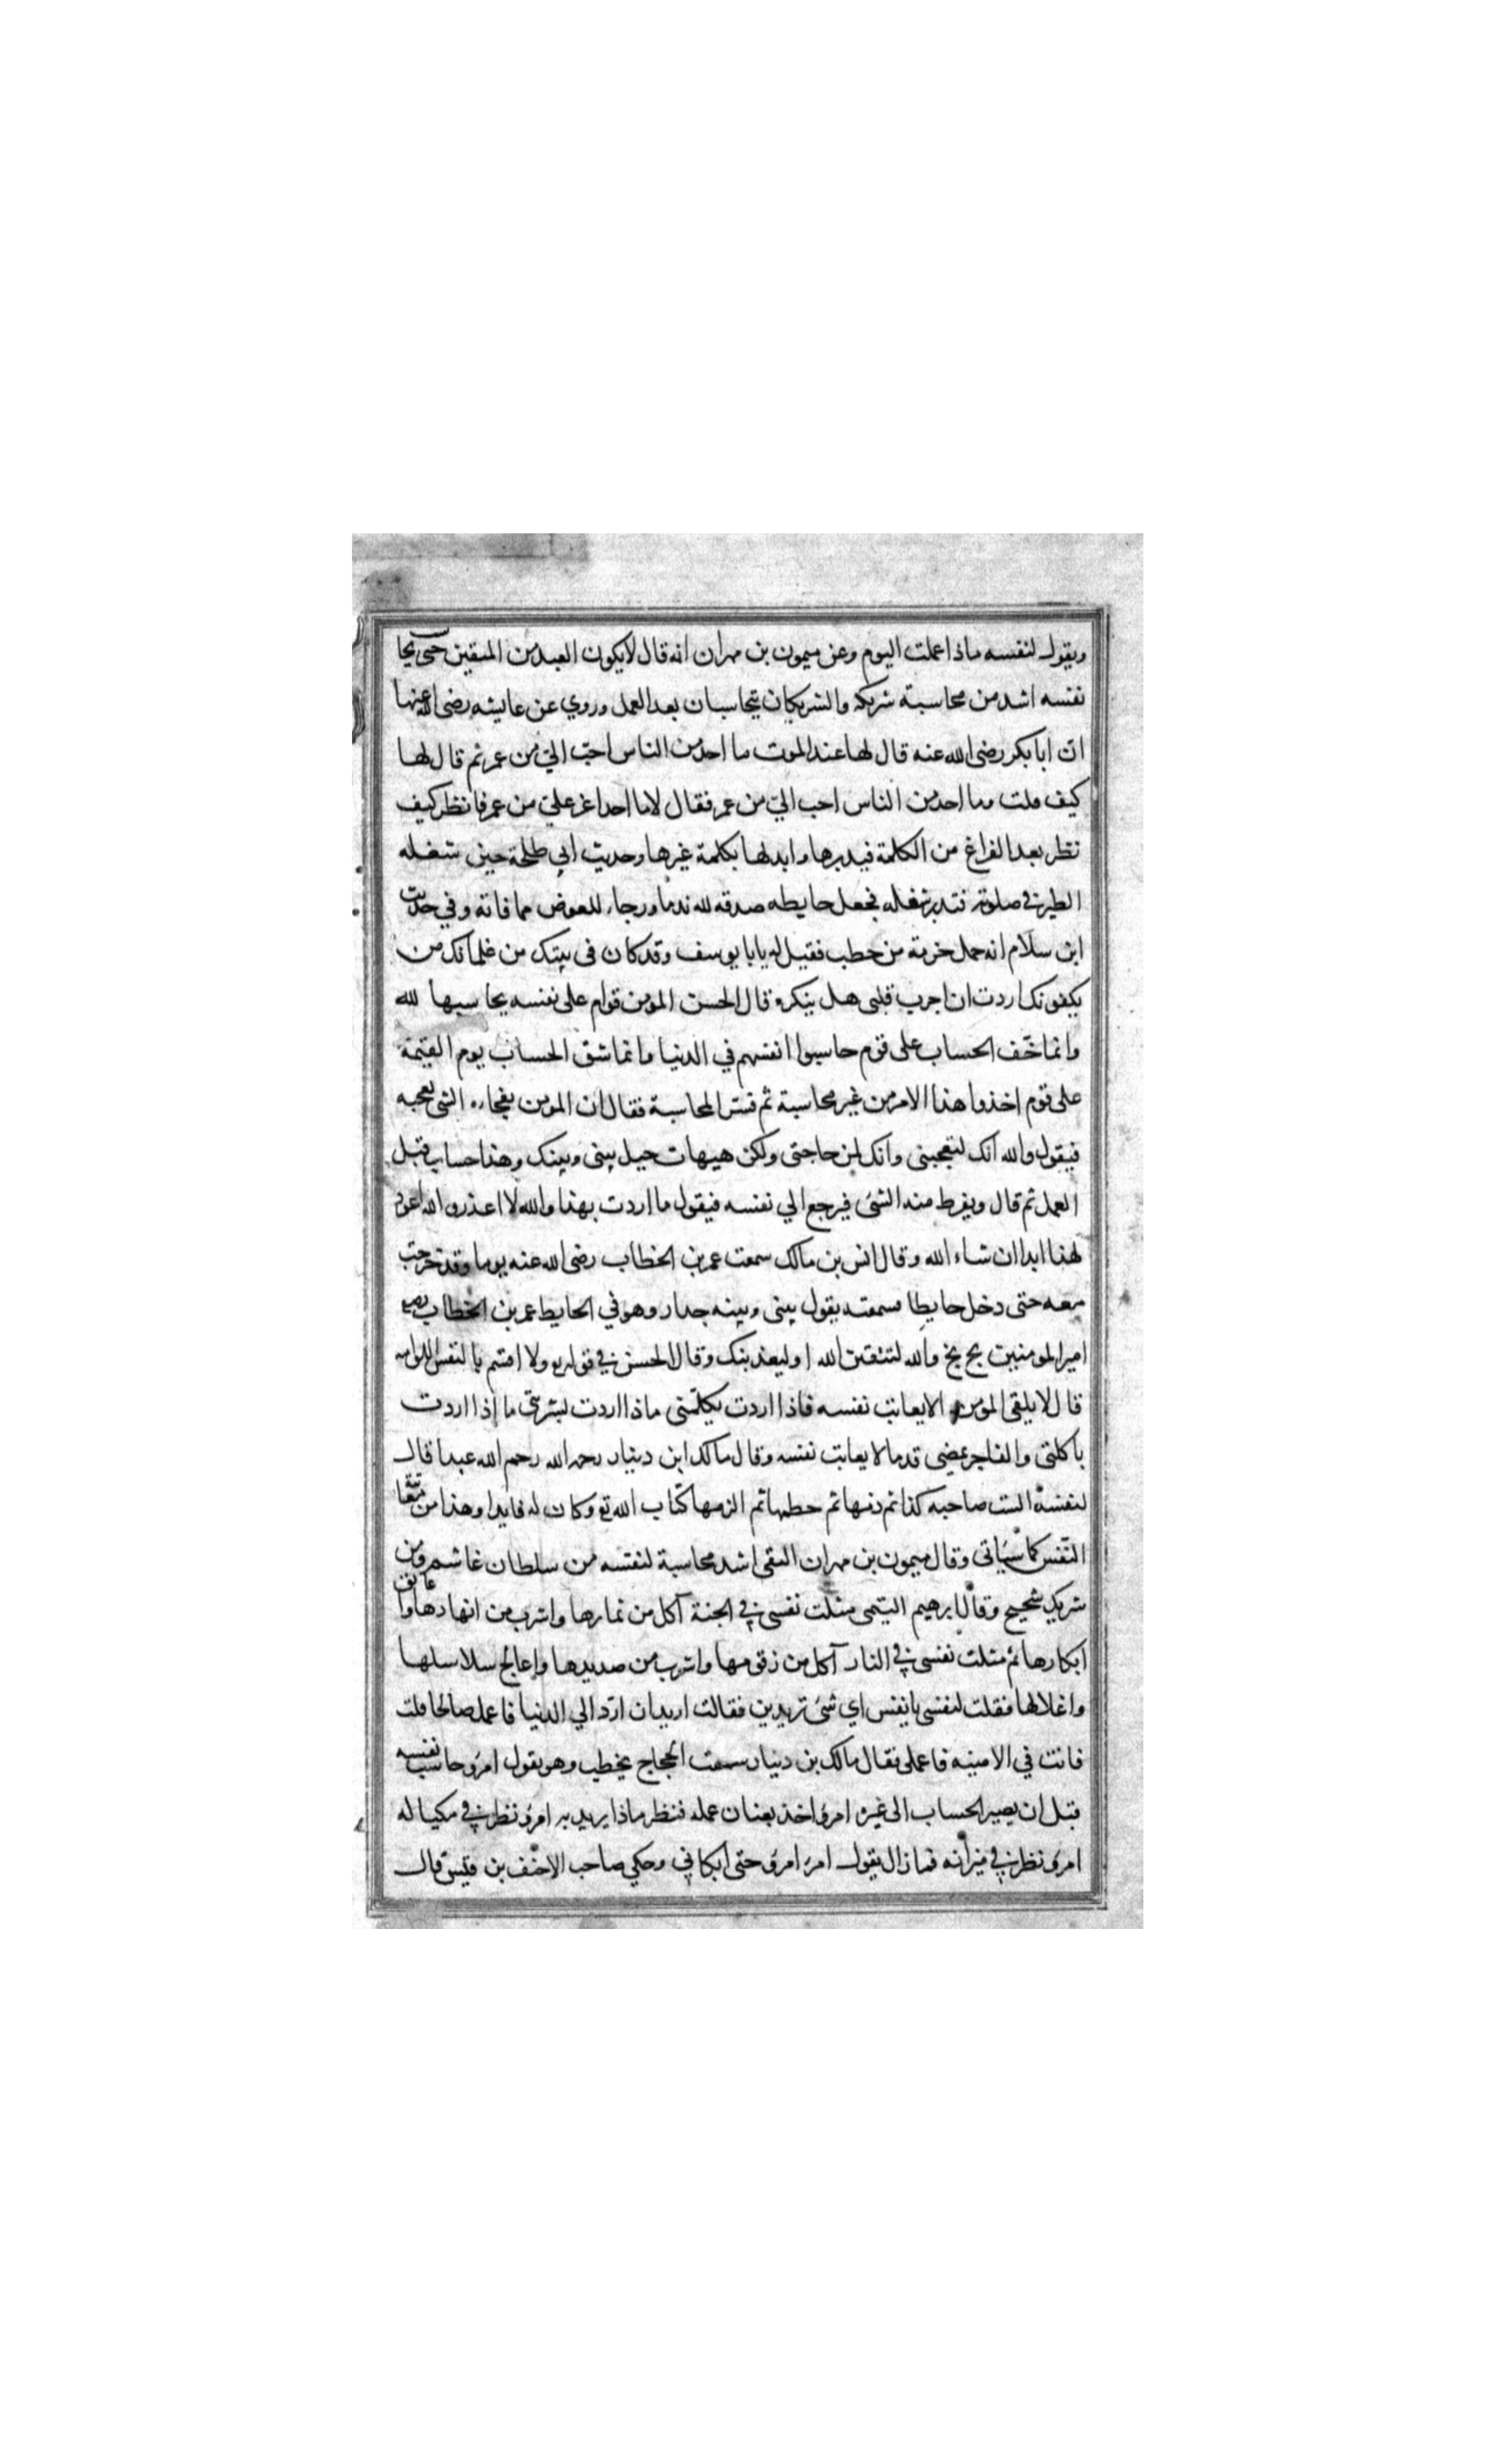 ويقول لنفسه ماذا عملت اليوم وعن ميمون بن مهران انه قال لا يكون العبد من المتقين حتى يحاسب
نفسه اشد من محاسبة شريكه والشريكان يتحاسبان بعد العمل وروي عن عايشه رضى الله عنها
ان ابا بكر رضى الله عنه قال لها عند الموت ما احد من الناس احب الي من عمر ثم قال لها
كيف قلت وما احد من الناس احب الي من عمر فقال لا ما احد اعز علي من عمر فانظر كيف
نظر بعد الفراغ من الكلمة فيدبرها وابدلها بكلمة غيرها وحديث ابي طلحة حين شغله
الطير في صلوته فتدبر شغله فجعل حايطه صدقه لله ندما ورجاء للعوض مما فاته وفي حديث
ابن سلام انه حمل حزمة من حطب فقيل له يابا يوسف وقد كان في بيتك من غلمانك من
يكفونك اردت ان اجرب قلبى هل ينكر وقال الحسن المومن قوام على نفسه يحاسبها لله
وانما خف الحساب على قوم حاسبوا انفسهم في الدنيا وانما شق الحساب يوم القيمة
على قوم اخذوا هذا الامر من غير محاسبة ثم فسر المحاسبة فقال ان المومن يفجاءه الشى يعجبه
فيقول والله انك لتعجبنى وانك لمن حاجتى ولكن هيهات حيل بينى وبينك وهذا حساب قبل
العمل ثم قال ويفرط منه الشئ فيرجع الي نفسه فيقول ما اردت بهذا والله لا اعذر والله لا اعود
لهذا ابدا ان شاء الله وقال انس بن مالك سمعت عمر بن الخطاب رضى الله عنه يوما وقد خرجت
معه حتى دخل حايطا سمعته يقول بينى وبينه جدار وهو في الحايط عمر بن الخطاب
امير المومنين بخ بخ والله لتتقين الله او ليعذبنك وقال الحسن في قوله تع ولا اقسم بالنفس اللوامه
قال لا يلقى المومن الا يعاتب نفسه فاذا اردت بكلمتى ماذا اردت بشربتى ما اذا اردت
باكلتى والفاجر يمضى قدما لا يعاتب نفسه وقال مالك ابن دينار رحمه الله رحم الله عبدا قال
لنفسه الست صاحبه كذا ثم ذمها ثم خطمها ثم الزمها كتاب الله تع وكان له قايدا وهذا من معاتبة
النفس كما سياتى وقال ميمون بن مهران التقى اشد محاسبة لنفسه من سلطان غاشم ومن
شريك شحيح وقال ابرهيم التيمى مثلت نفسى في الجنة آكل من ثمارها واشرب من انهارها واعانق
ابكارها ثم مثلت نفسى في النار آكل من زقومها واشرب من صديدها واعالج سلاسلها
واغلالها فقلت لنفسى يا نفس اي شئ تريدين فقالت اريد ان ارد الي الدنيا فاعمل صالحا قلت
فانت في الامنيه فاعملى فقال مالك بن دينار سمعت الحجاج يخطب وهو يقول امرؤ حاسب نفسه
قبل ان يصير الحساب الى غيره امرؤ اخذ بعنان عمله فنظر ماذا يريد به امرؤ نظر في مكياله
امرؤ نظر في ميزانه فما زال يقول امرؤ امرؤ حتى ابكاني وحكي صاحب الاحنف بن قيس قال